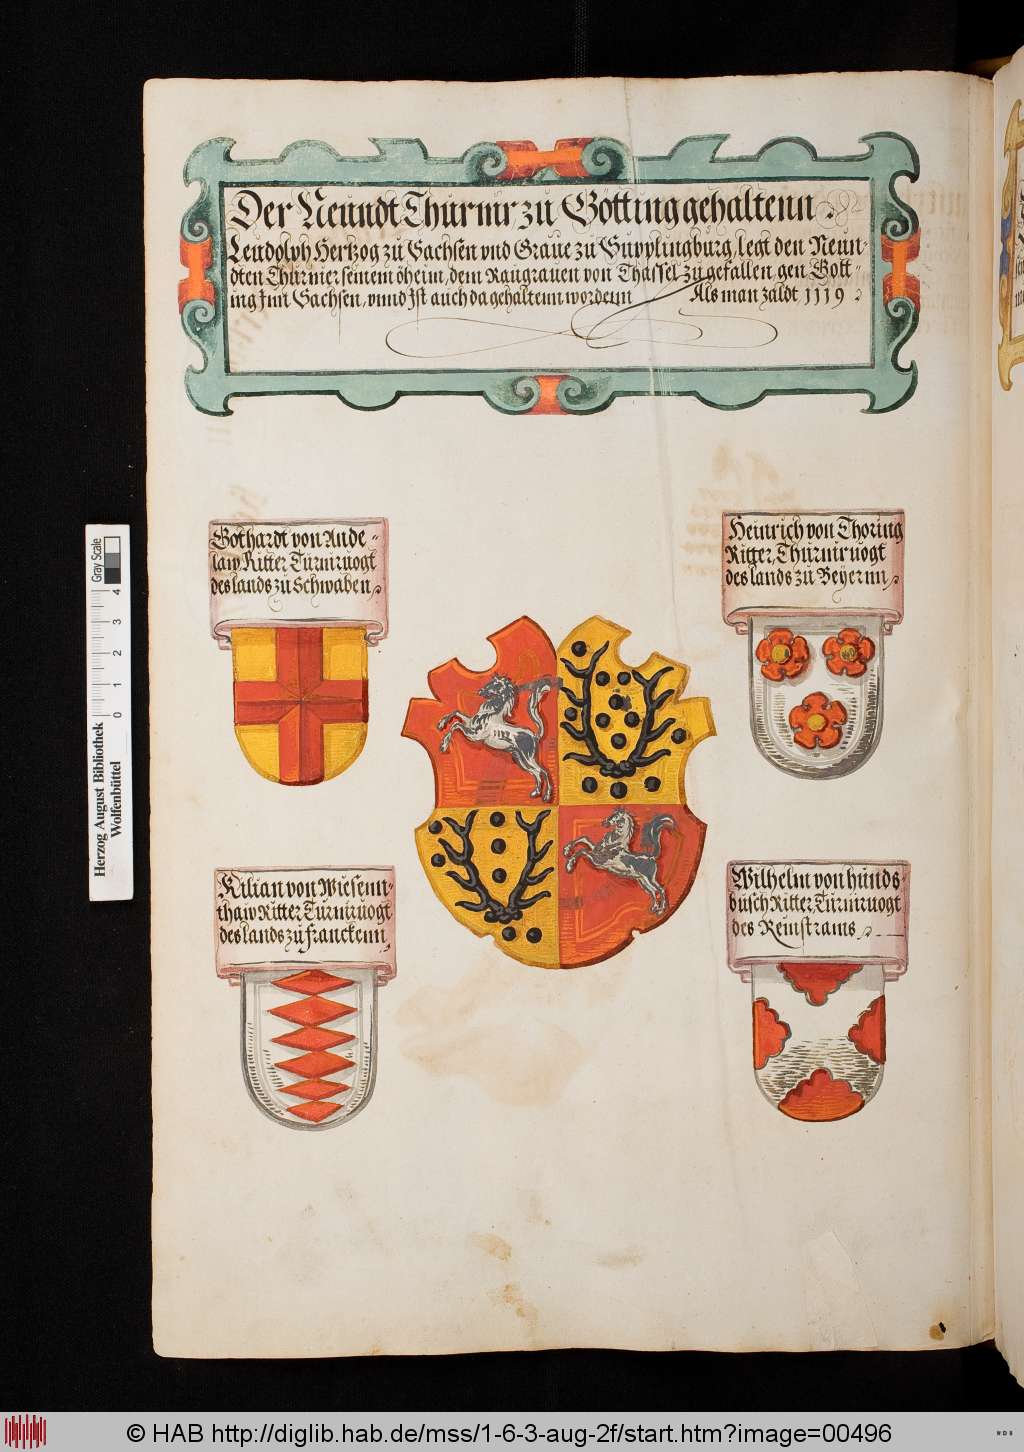 Der Neundt Thurnir zu Götting gehaltenn.
Leudolph Hertzog zu Sachsen vnd Graue zu Supplingburg, legt den Neun-
dten Thurnier seinem öheim, dem Raugrauen von Thassel zu gefallen, gen Gott-
ing Jnn Sachsen, vnnd Jst auch da gehaltenn wordenn Als man zaldt 1119.
Gothardt von Ande-
law Ritter Turniruogt
des lands zu Schwaben
Heinrich von Thoring
Ritter, Thurniruogt
des lands zu Beyernn
Kilian von Wiesennt-
thaw Ritter Turniruogt
des lands zu franckenn
Wilhelm von hunds-
busch Ritter, Turniruogt
des Reinstrams
Herzog August Bibliothek
Wolfenbüttel
0 1 2 3 4
Gray Scale
© HAB http://diglib.hab.de/mss/1-6-3-aug-2f/start.htm?image=00496